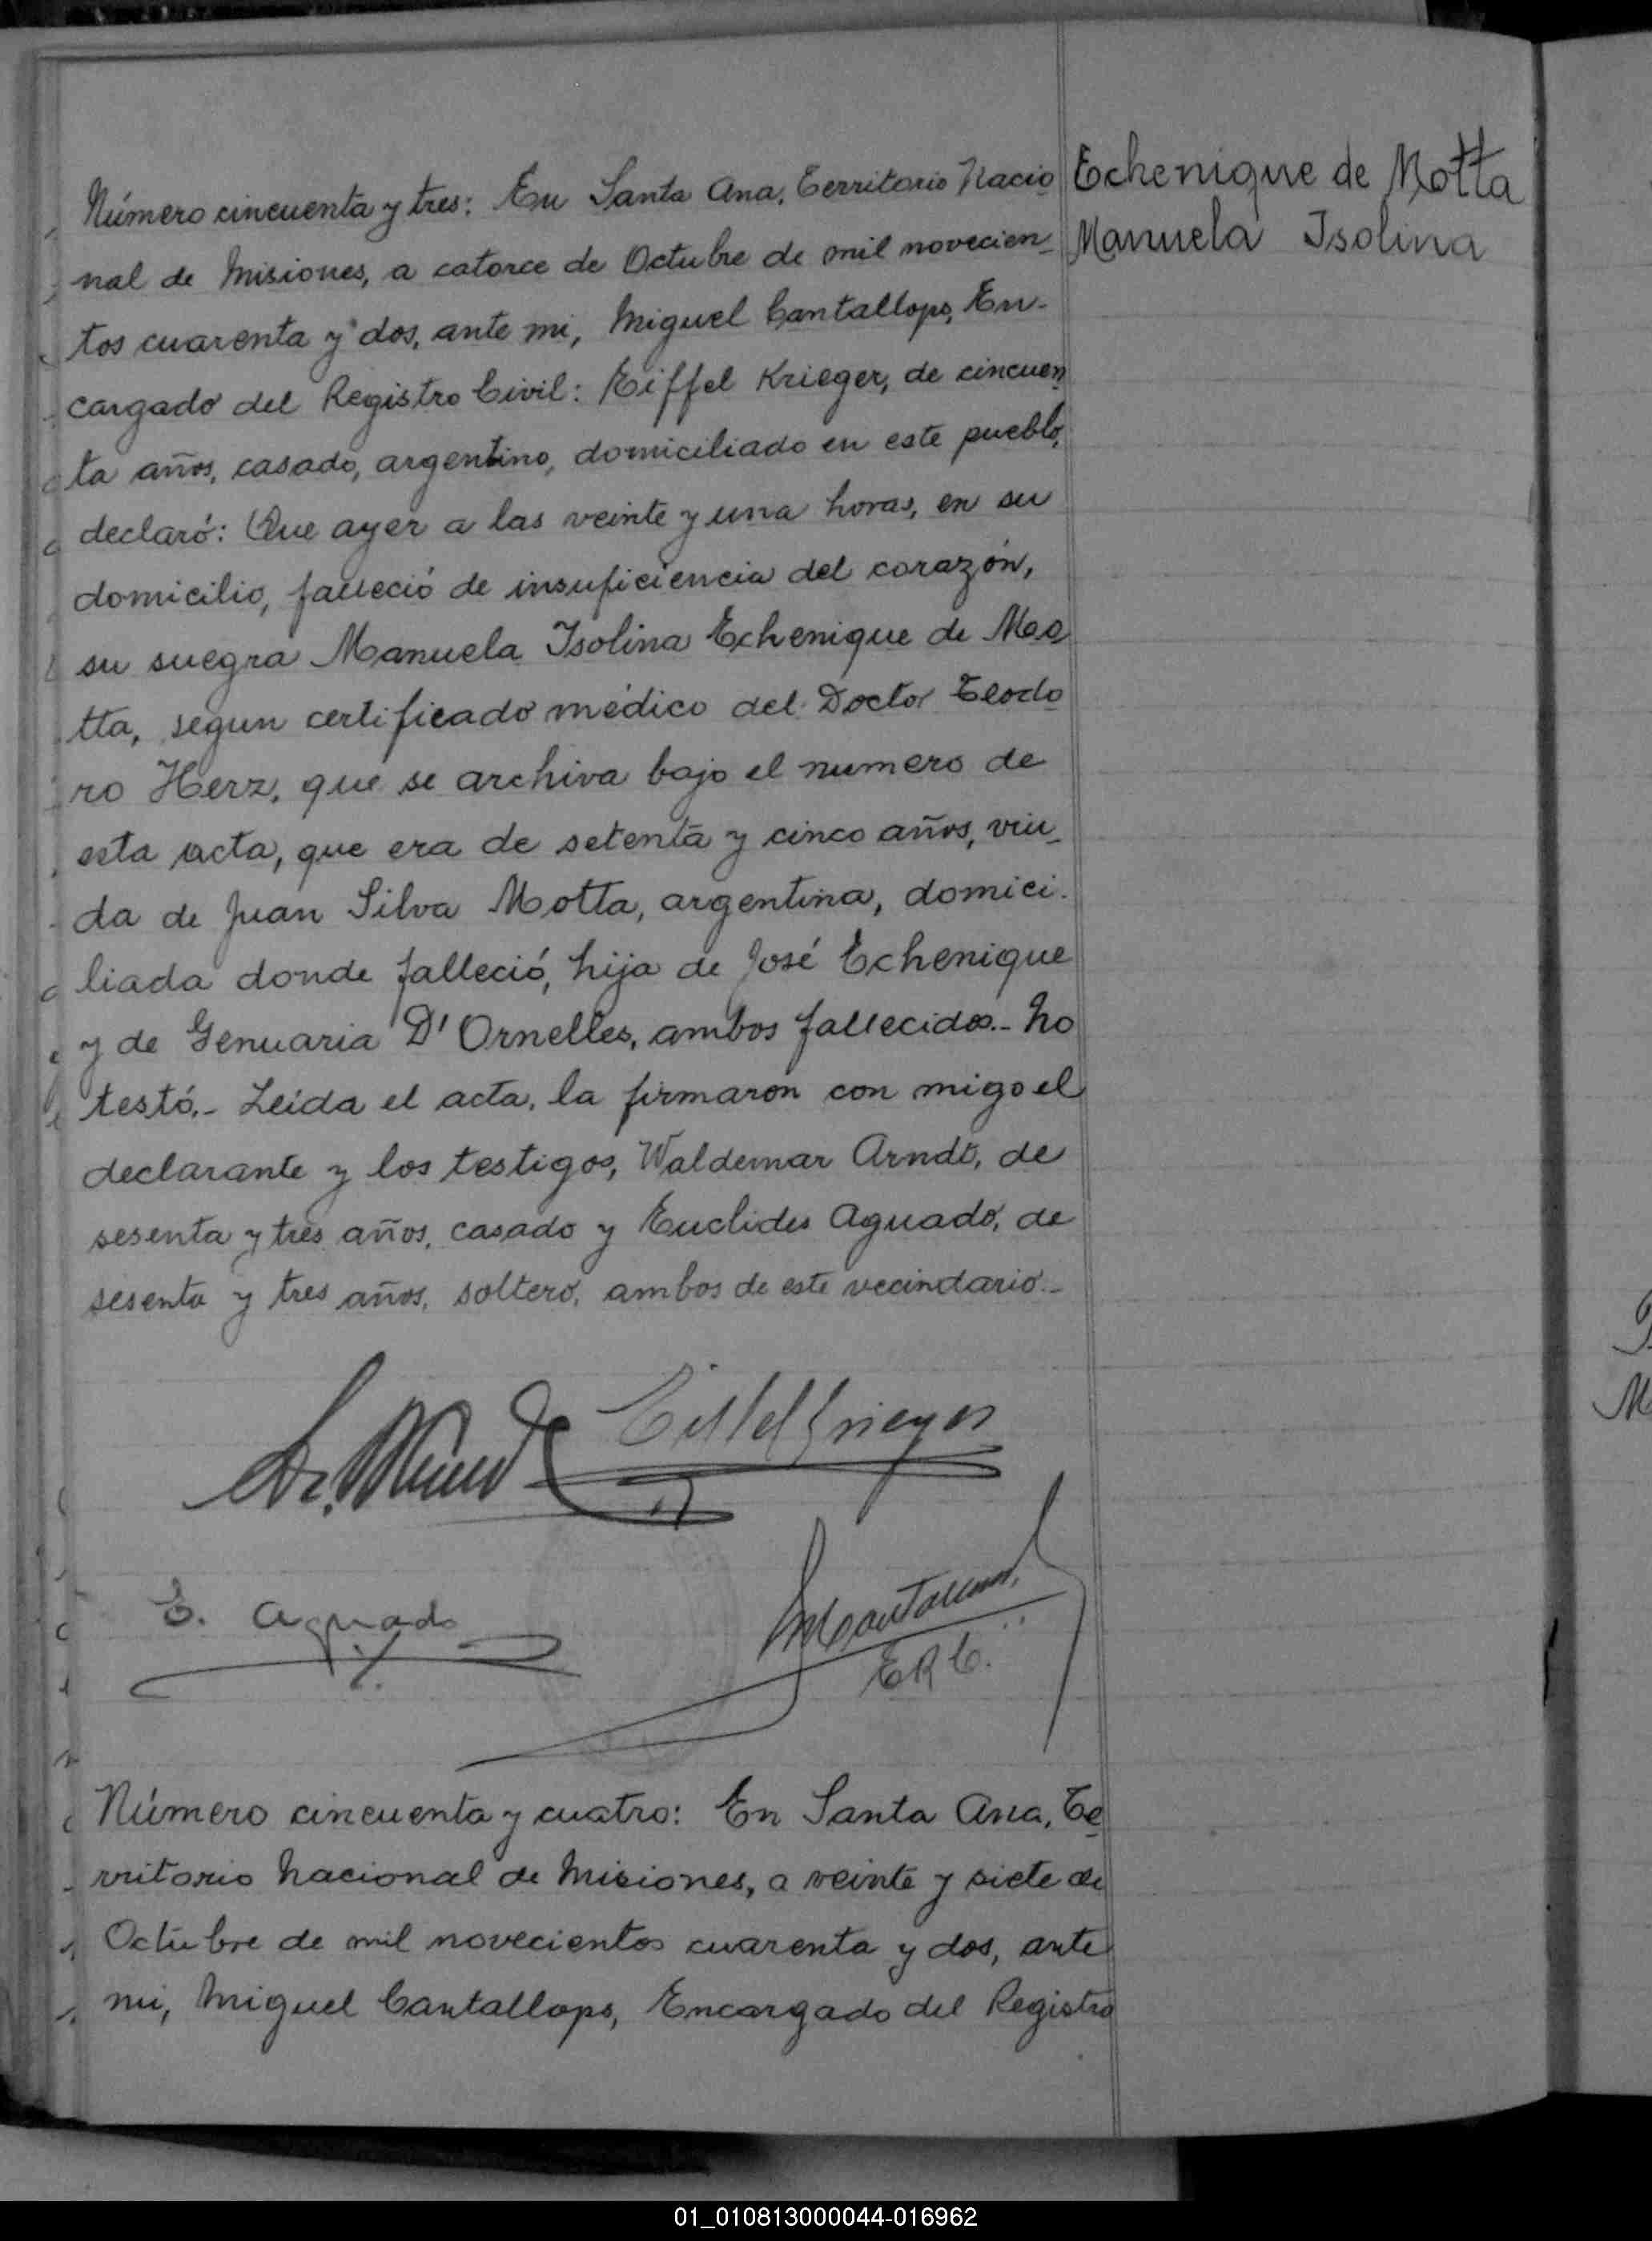 Echenique de Motta
Manuela Isolina
Número cincuenta y tres: En Santa Ana, Territorio Nacio
nal de Misiones, a catorce de Octubre de mil novecien-
tos cuarenta y dos, ante mi, Miguel Cantallops, En-
cargado del Registro Civil: Eiffel Krieger, de cincuen
ta años, casado, argentino, domiciliado en este pueblo,
declaró: Que ayer a las veinte y una horas, en su
domicilio, falleció de insuficiencia del corazón,
su suegra Manuela Isolina Echenique de Mo
tta, segun certificado médico del Doctor Teodo
ro Herz, que se archiva bajo el numero de
esta acta, que era de setenta y cinco años, viu-
da de Juan Silva Motta, argentina, domici-
liada donde falleció, hija de José Echenique
y de Genuaria D'Ornelles, ambos fallecidos.- No
testó.- Leída el acta, la firmaron con migo el
declarante y los testigos, Waldemar Arndt, de
sesenta y tres años, casado y Euclides Aguado, de
sesenta y tres años, soltero, ambos de este vecindario.-
Eiffel Krieger
E. Aguado
ERC.
Número cincuenta y cuatro: En Santa Ana, Te
rritorio Nacional de Misiones, a veinte y siete de
Octubre de mil novecientos cuarenta y dos, ante
mi, Miguel Cantallops, Encargado del Registro
01_010813000044-016962